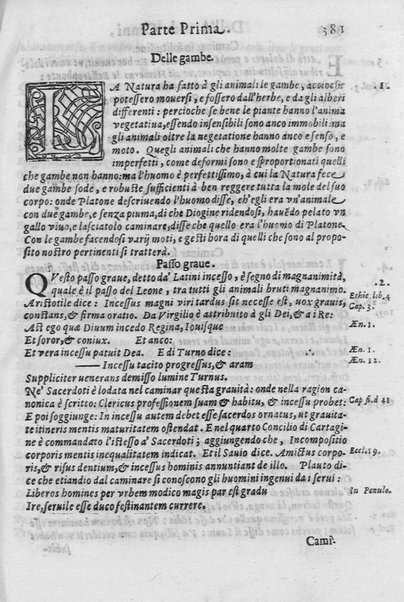 Parte Prima. 381
Delle gambe.
LA Natura ha fatto à gli animali le gambe, acciοche 1.
potessero mouersi, e fossero dall'herbe, e da gli alberi
differenti: percioche se bene le piante hanno l'anima
vegetatiua, essendo insensibili sono anco immobili: ma
gli animali oltre la vegetatione hanno anco e senso, e
moto. Quegli animali che hanno molte gambe sono
imperfetti, come deformi sono e sproportionati quelli
che gambe non hanno: ma l'huomo è perfettissimo, à cui la Natura fece
due gambe sode, e robuste sufficienti à ben reggere tutta la mole del suo
corpo: onde Platone descriuendo l'huomo disse, ch'egli era vn'animale
con due gambe, e senza piuma, di che Diogine ridendosi, hauēdo pelato vn
gallo viuo, e lasciatolo caminare, disse che quello era l'huomo di Platone.
Con le gambe facendosi varij moti, e gesti hora di quelli che sono al propo-
sito nostro pertinenti si tratterà.
Passo graue.
QVesto passo graue, detto da' Latini incesso, è segno di magnanimità, .2.
quale è il passo del Leone, tra tutti gli animali bruti magnanimo. Ethic. lib.4
Aristotile dice: Incessus magni viri tardus sit necesse est, uox grauis, Cap. 3.
constans, & firma oratio. Da Virgilio è attribuito à gli Dei, & a i Re:
Ast ego quæ Diuum incedo Regina, Iouisque Æn. 1.
Et soror, & coniux. Et anco:
Et vera incessu patuit Dea. E di Turno dice: Æn. 1.
—— Incessu tacito progressus, & aram Æn. 12.
Suppliciter uenerans demisso lumine Turnus.
Ne' Sacerdoti è lodata nel caminar questa grauità: onde nella ragion ca-
nonica è scritto: Clericus professionem suam & habitu, & incessu probet: Cap si. d 41
E poi soggiunge: In incessu autem debet esse sacerdos ornatus, ut grauita-
te itineris mentis maturitatem ostendat. E nel quarto Concilio di Cartagi-
ne è commandato l'istesso a' Sacerdoti; aggiungendo che, Incompositio
corporis mentis inequalitatem indicat. E il Sauio dice. Amictus corpo- Eccl. 19.
ris, & risus dentium, & incessus hominis annuntiant de illo. Plauto di-
ce che etiandio dal caminare si conoscono gli huomini ingenui da i serui:
Liberos homines per vrbem modico magis par est gradu In Penulo.
Ire, seruile esse duco festinantem currere.
Cami-